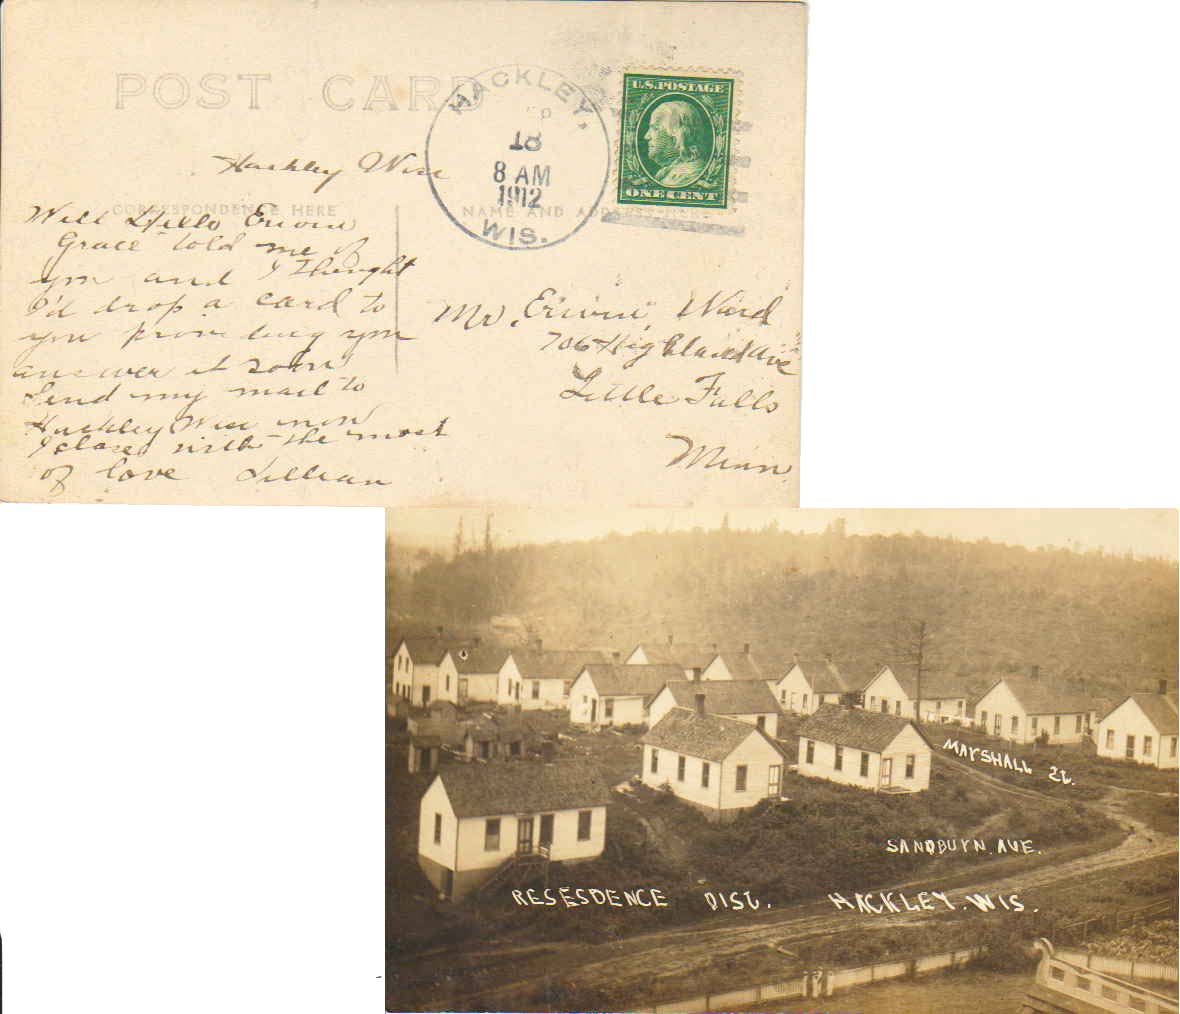 POST CARD
HACKLEY,
18
8 AM
1912
WIS.
U.S. POSTAGE
ONE CENT
Hackley Wis
CORRESPONDENCE HERE
NAME AND ADDRESS HERE
Well Hello Erwin
Grace told me of
you and I thought
I'd drop a card to
you proveding you
answer it soon
Send my mail to
Hackley Wis now
I close with the most
of love Lillian
Mr. Erwin Ward
706 Highland Ave
Little Falls
Minn
MARSHALL St.
SANDBURN. AVE.
RESESDENCE DIST. HACKLEY. WIS.